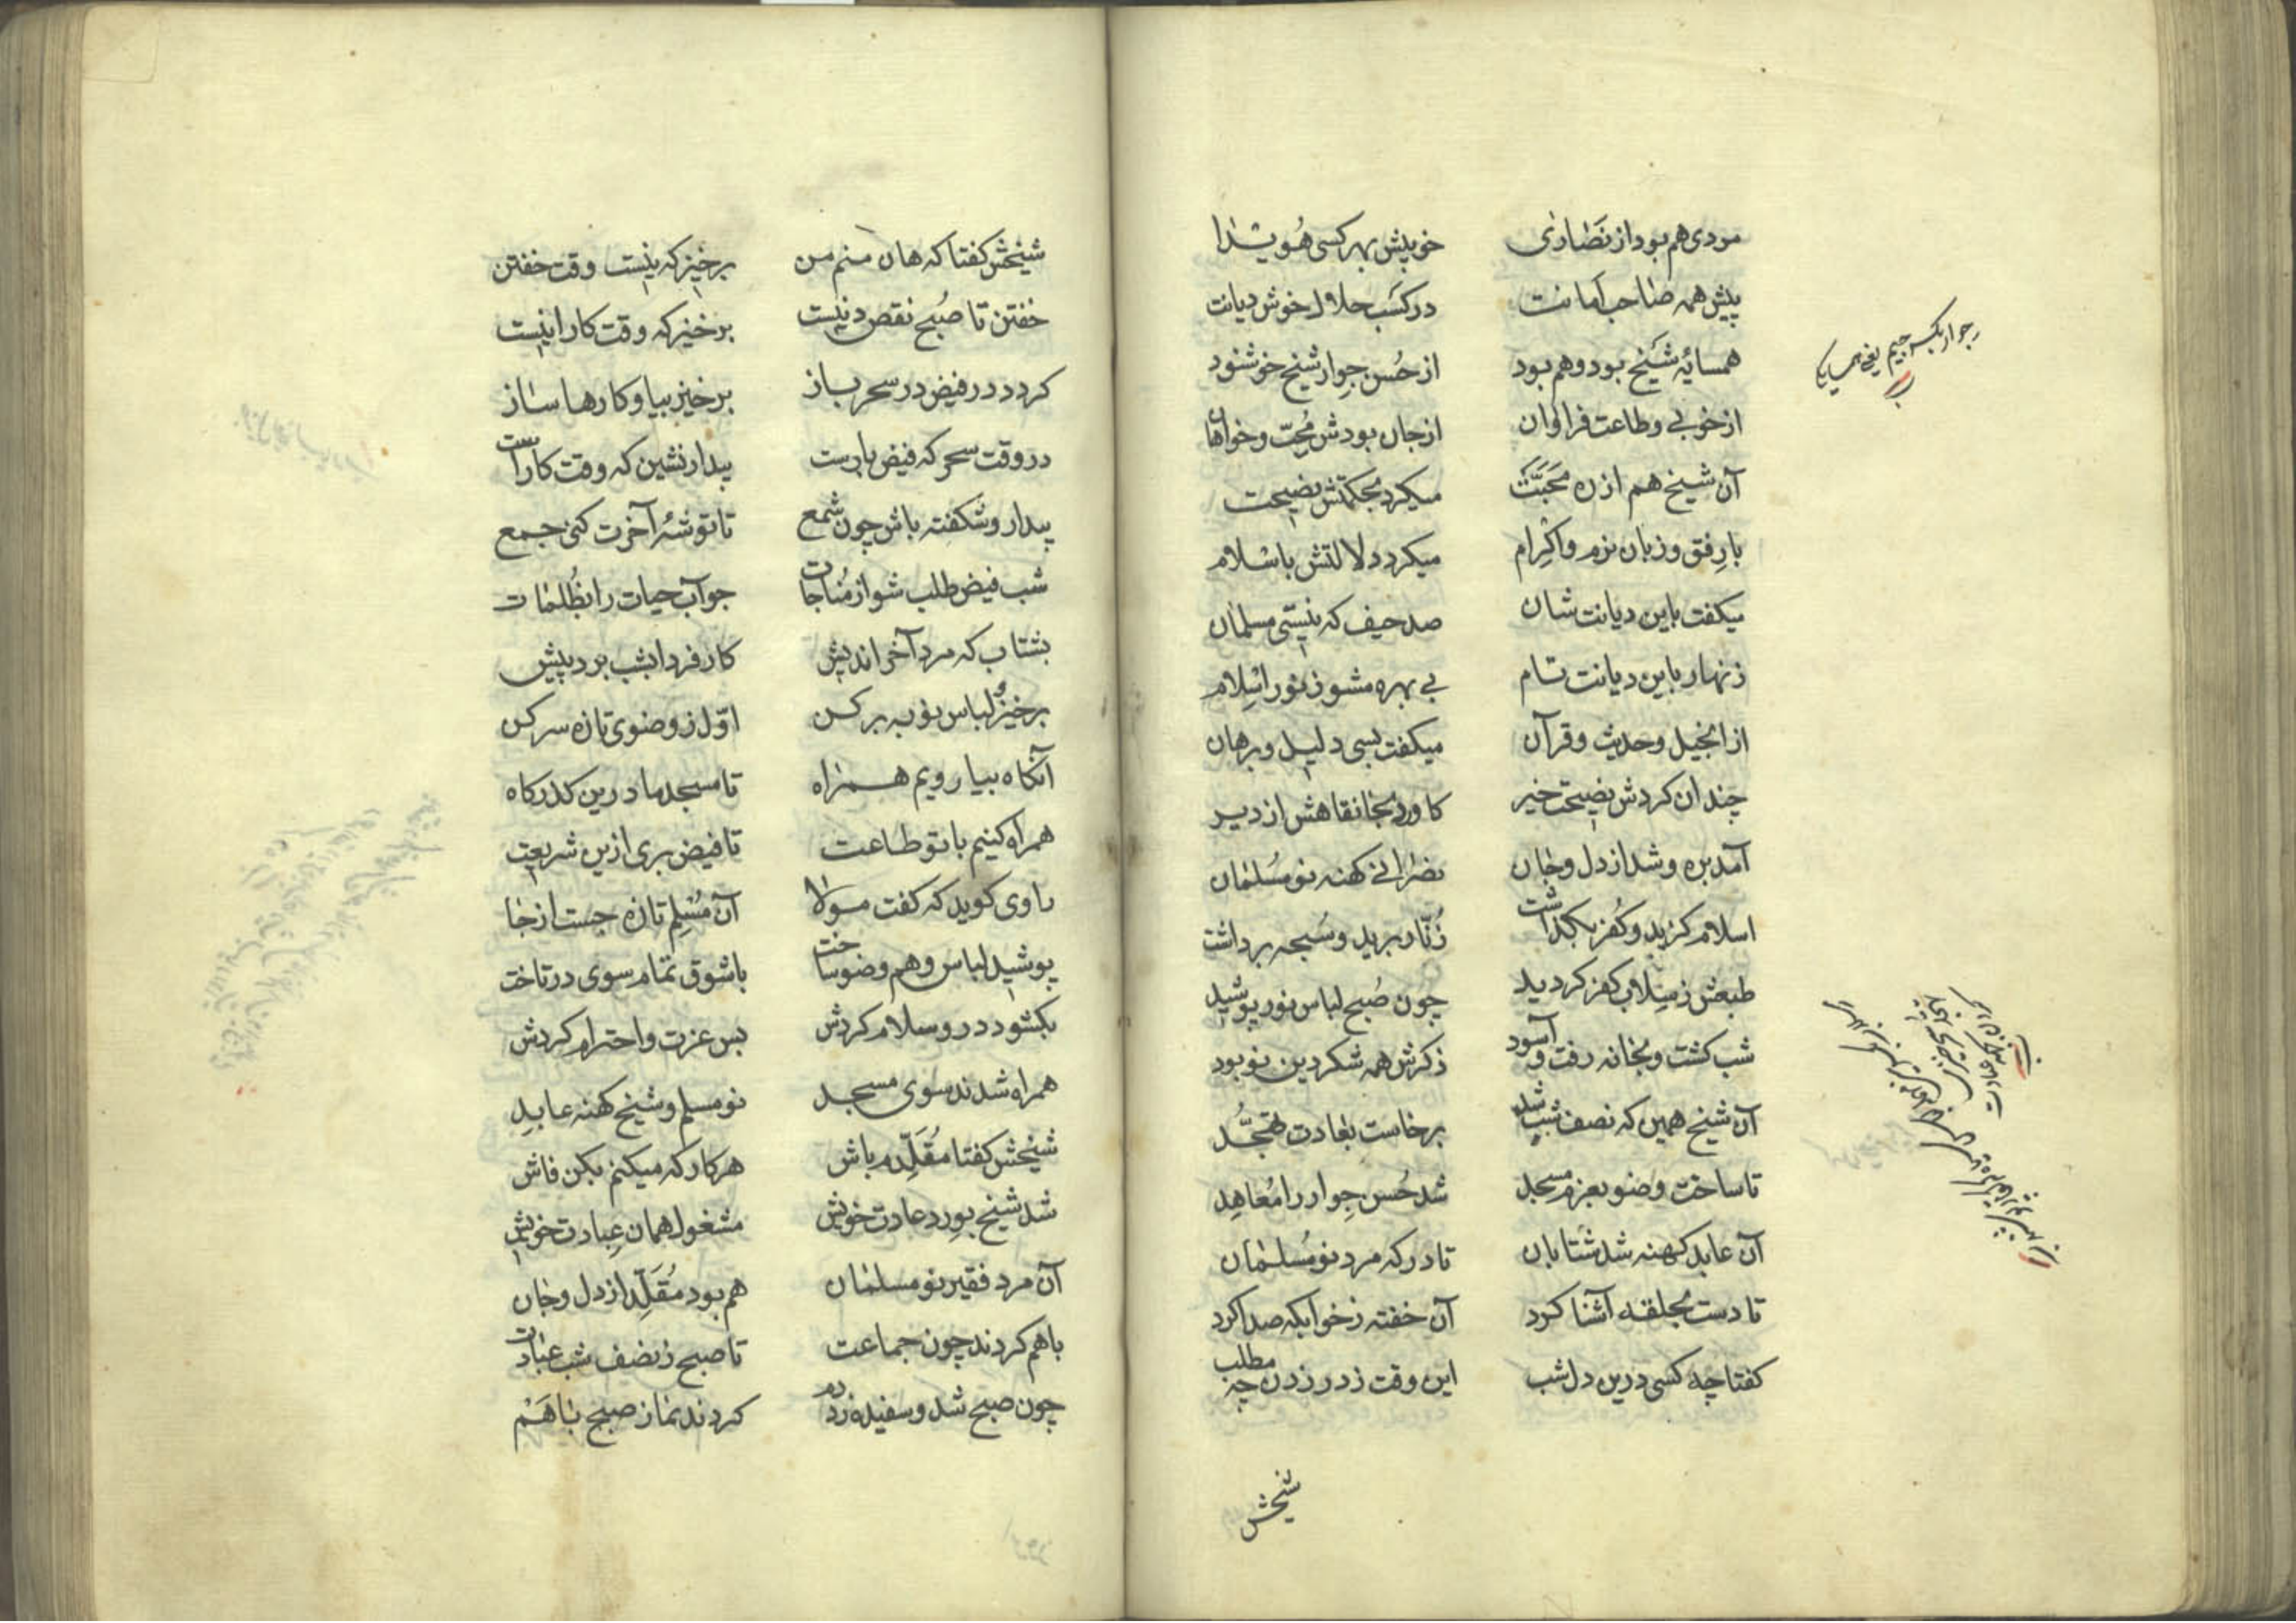 مردی هم بود از نصاری    خوبیش بهر کسی هویدا
پیش همه صاحب امانت    در کسب حلال خوش دیانت
همسایهٔ شیخ بود و هم بود    از حُسن جِوار شیخ خوشنود
از خوبی و طاعت فراوان    از جان بودش مُحِبّ و خواهان
آن شیخ هم از ره مَحَبَّتْ    میکرد بحکمتش نصیحت
با رِفق و زبان نرم و اکرام    میکرد دلالتش باسلام
میکفت باین دیانت شان    صد حیف که نیستی مسلمان
زنهار باین دیانت تام    بی بهره مشو ز نور اسلام
از انجیل و حدیث و قرآن    میکفت بسی دلیل و برهان
چندان کردش نصیحت خیر    کاورد بخانقاهش از دیر
آمد بره و شد از دل و جان    نصرانی کهنه نو مُسلمان
اسلام کزید و کفر بکذاشت    زُنّار برید و سُبحه برداشت
طبعش ز میلان کفر کردید    چون صُبح لباس نور پوشید
شب کشت و بخانه رفت و آسود    ذکرش همه شکر دین نو بود
آن شیخ همین که نصف شب شد    برخاست بعادت تهجُّد
تا ساخت وضو بعزم مسجد    شد حُسن جِوار را مُعاهِد
آن عابد کهنه شد شتابان    تا درکه مرد نو مُسلمان
تا دست بحلقه آشنا کرد    آن خفته ز خوابکه صدا کرد
کفتا چه کسی درین دل شب    این وقت ز در زدن چه مطلب
شیخش
جوار بکسر جیم یعنی همسایکی
شیخش کفتا که هان منم من    برخیز که نیست وقت خفتن
خفتن تا صُبح نقص دنیست    برخیز که وقت کار اینست
کردد در فیض در سحر باز    برخیز بیا و کارها ساز
در وقت سحر که فیض بارست    بیدار نشین که وقت کارست
بیدار و شکفته باش چون شمع    تا توشهٔ آخرت کنی جمع
شب فیض طلب شو از مُناجات    جو آب حیات را بظُلمات
بشتاب که مرد آخر اندیش    کار فردا بشب برد پیش
برخیز لباس نو ببر کن    اوّل ز وضوی تازه سر کن
آنکاه بیا رویم همراه    تا مسجد ما درین کذرکاه
همراه کنیم با تو طاعت    تا فیض بری ازین شریعت
راوی کوید که کفت مولا    آن مُسلِم تازه جست از جا
پوشید لباس و هم وضو ساخت    با شوق تمام سوی در تاخت
بکشود در و سلام کردش    بس عزت و احترام کردش
همراه شدند سوی مسجد    نو مسلم و شیخ کهنه عابد
شیخش کفتا مُقَلِّدم باش    هر کار که میکنم بکن فاش
شد شیخ بورد عادت خویش    مشغول همان عبادت خویش
آن مرد فقیر نو مسلمان    هم بود مُقَلِّد از دل و جان
با هم کردند چون جماعت    تا صبح ز نصف شب عبادت
چون صبح شد و سفیده زد دم    کردند نماز صبح با هَم